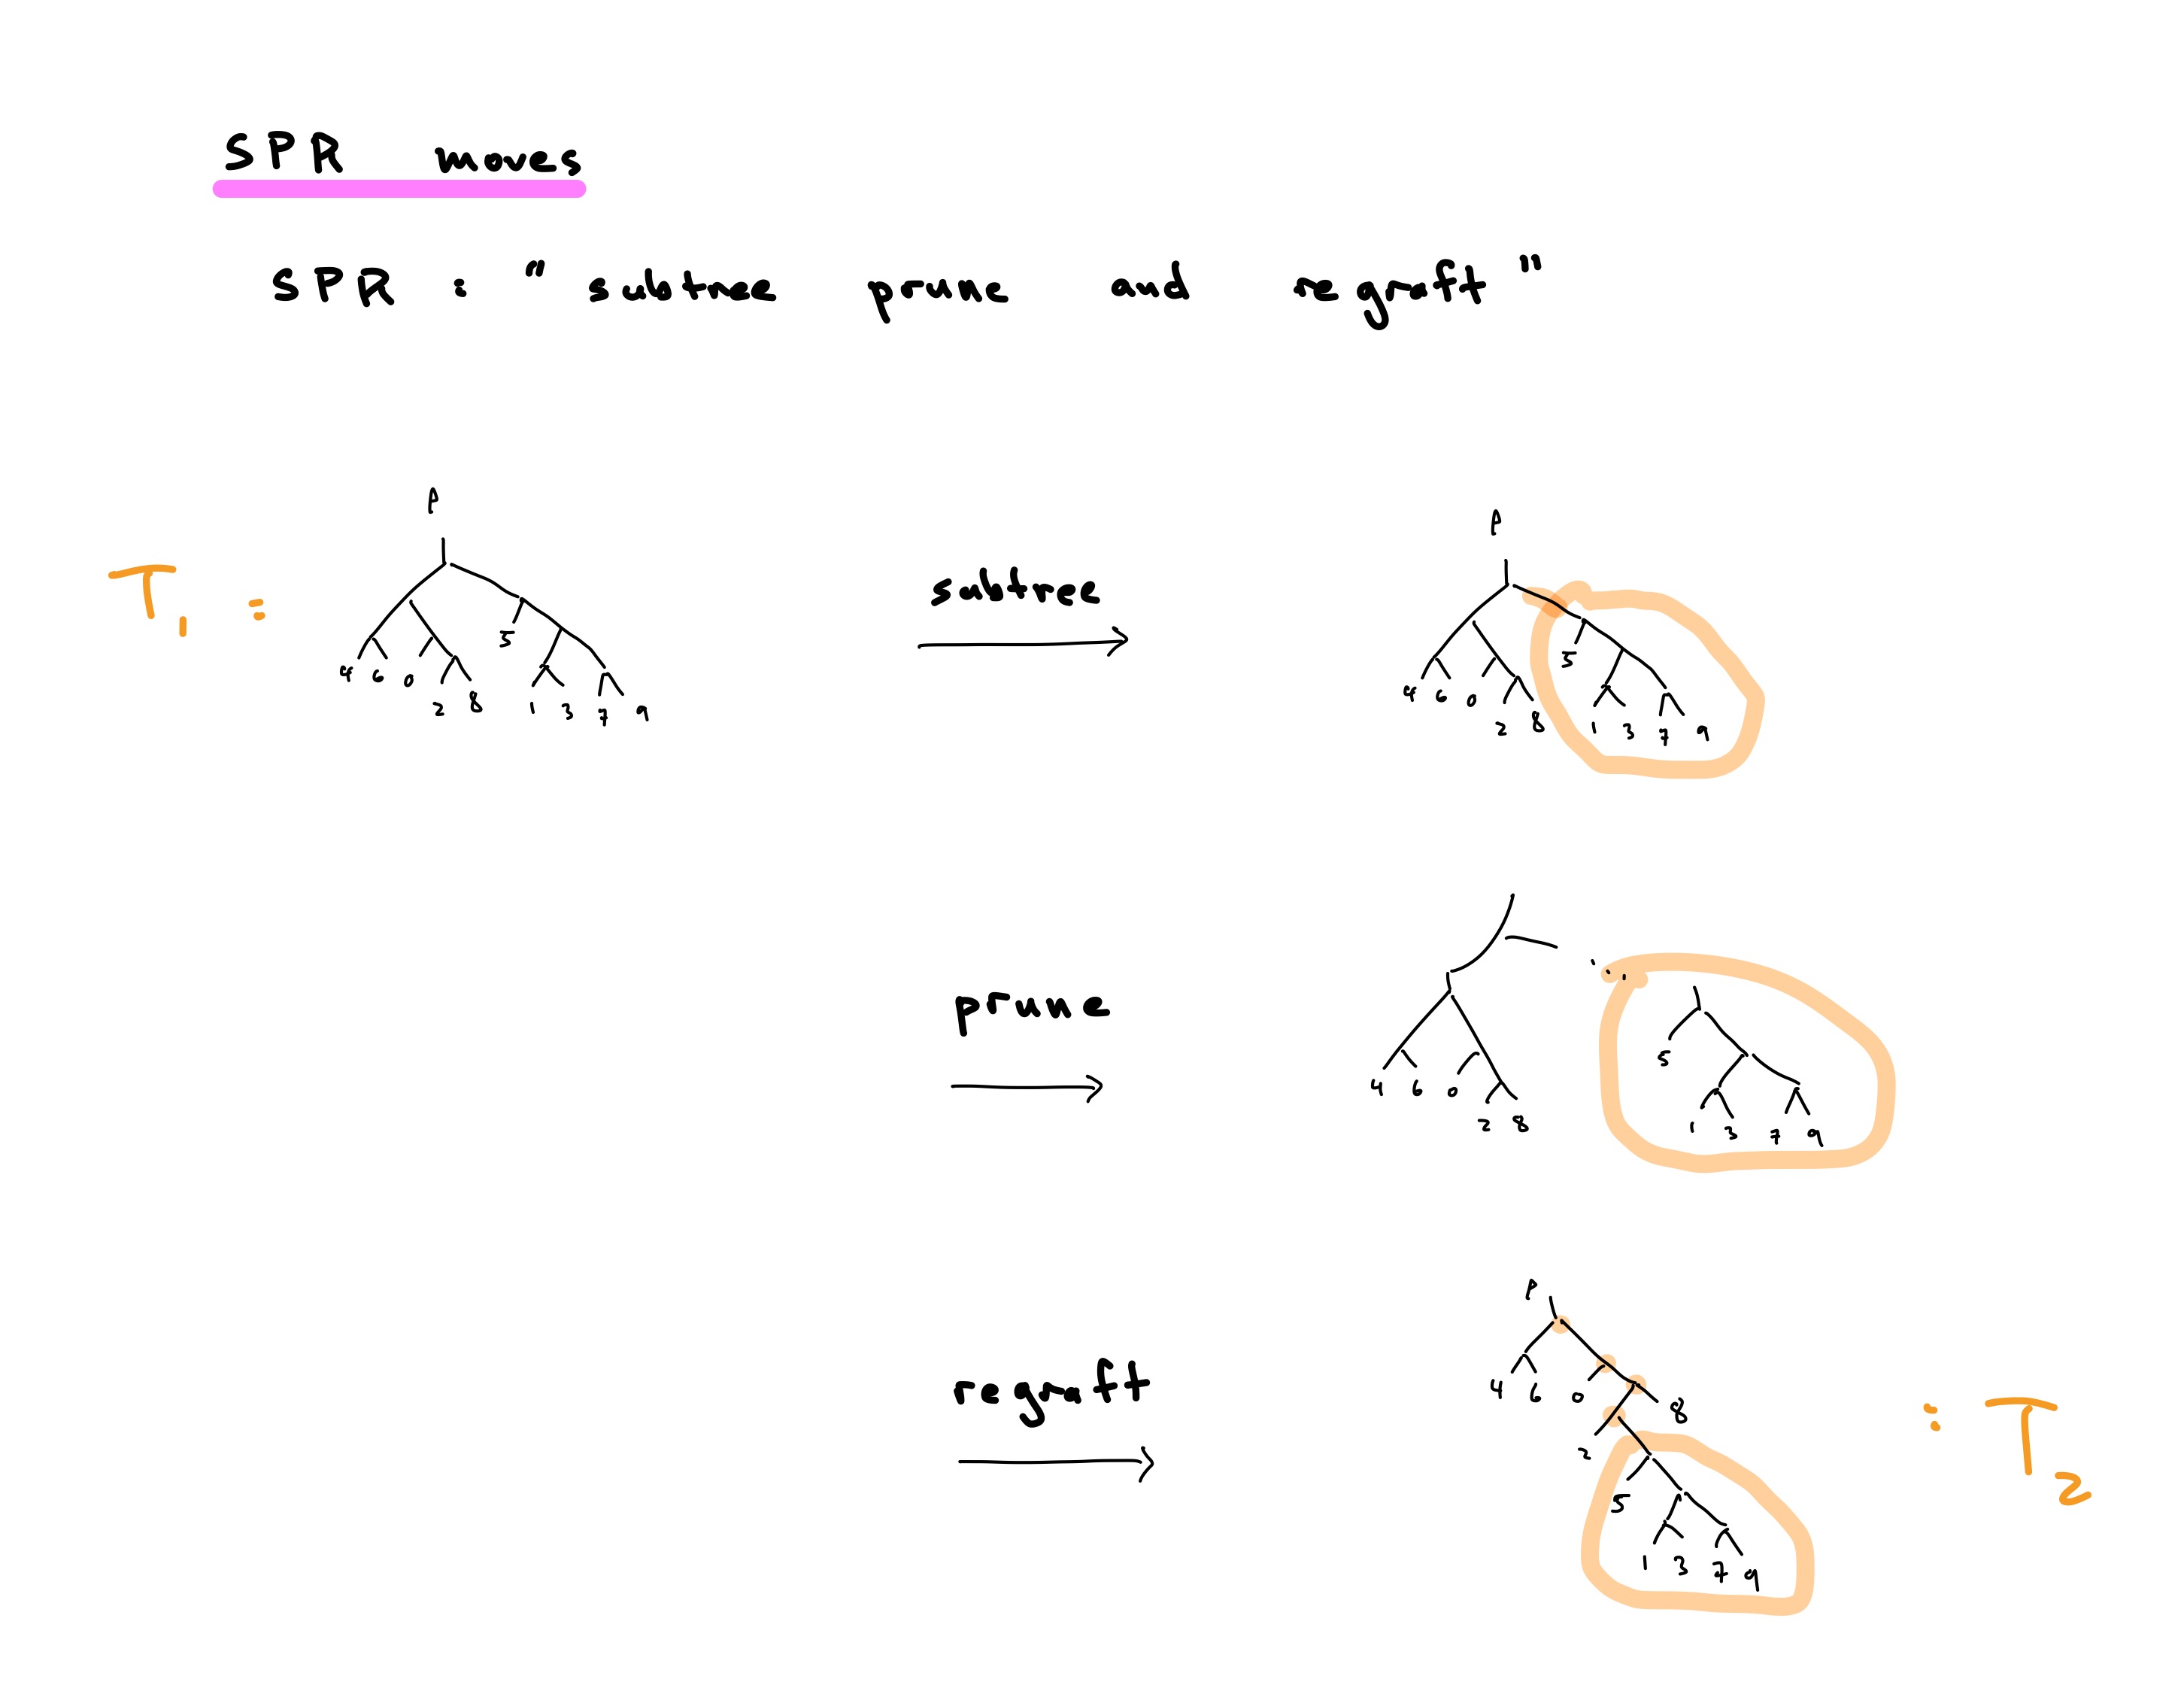 SPR moves
SPR : " subtree prune and regraft "
ρ
T1 :
4 6 0 2 8 5 1 3 7 9
subtree
ρ
4 6 0 2 8 5 1 3 7 9
prune
4 6 0 2 8 5 1 3 7 9
regraft
ρ
4 6 0 8
2
5
1 3 7 9
: T2